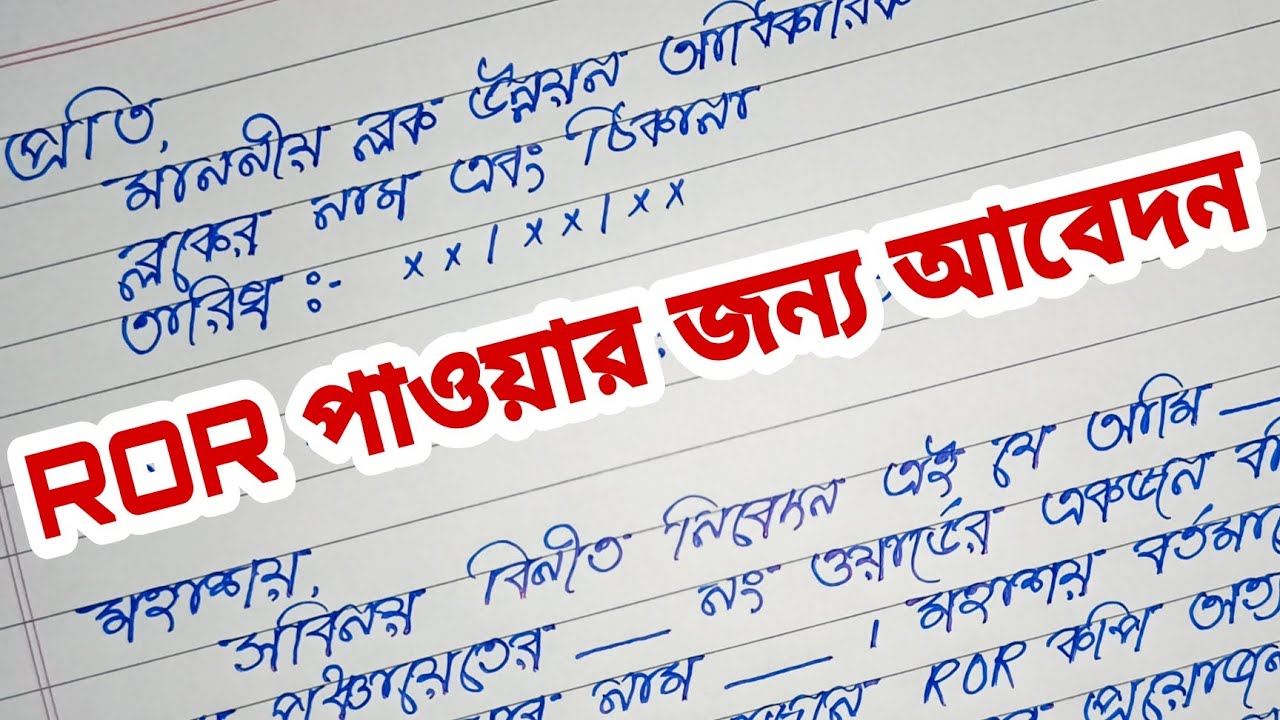 প্রতি,
মাননীয় ব্লক উন্নয়ন আধিকারিক
ব্লকের নাম এবং ঠিকানা
তারিখ :- xx/xx/xx
ROR পাওয়ার জন্য আবেদন
মহাশয়,
সবিনয় বিনীত নিবেদন এই যে আমি —
পঞ্চায়েতের — নং ওয়ার্ডের একজন
নাম — । মহাশয় বর্তমানে
ROR কপি